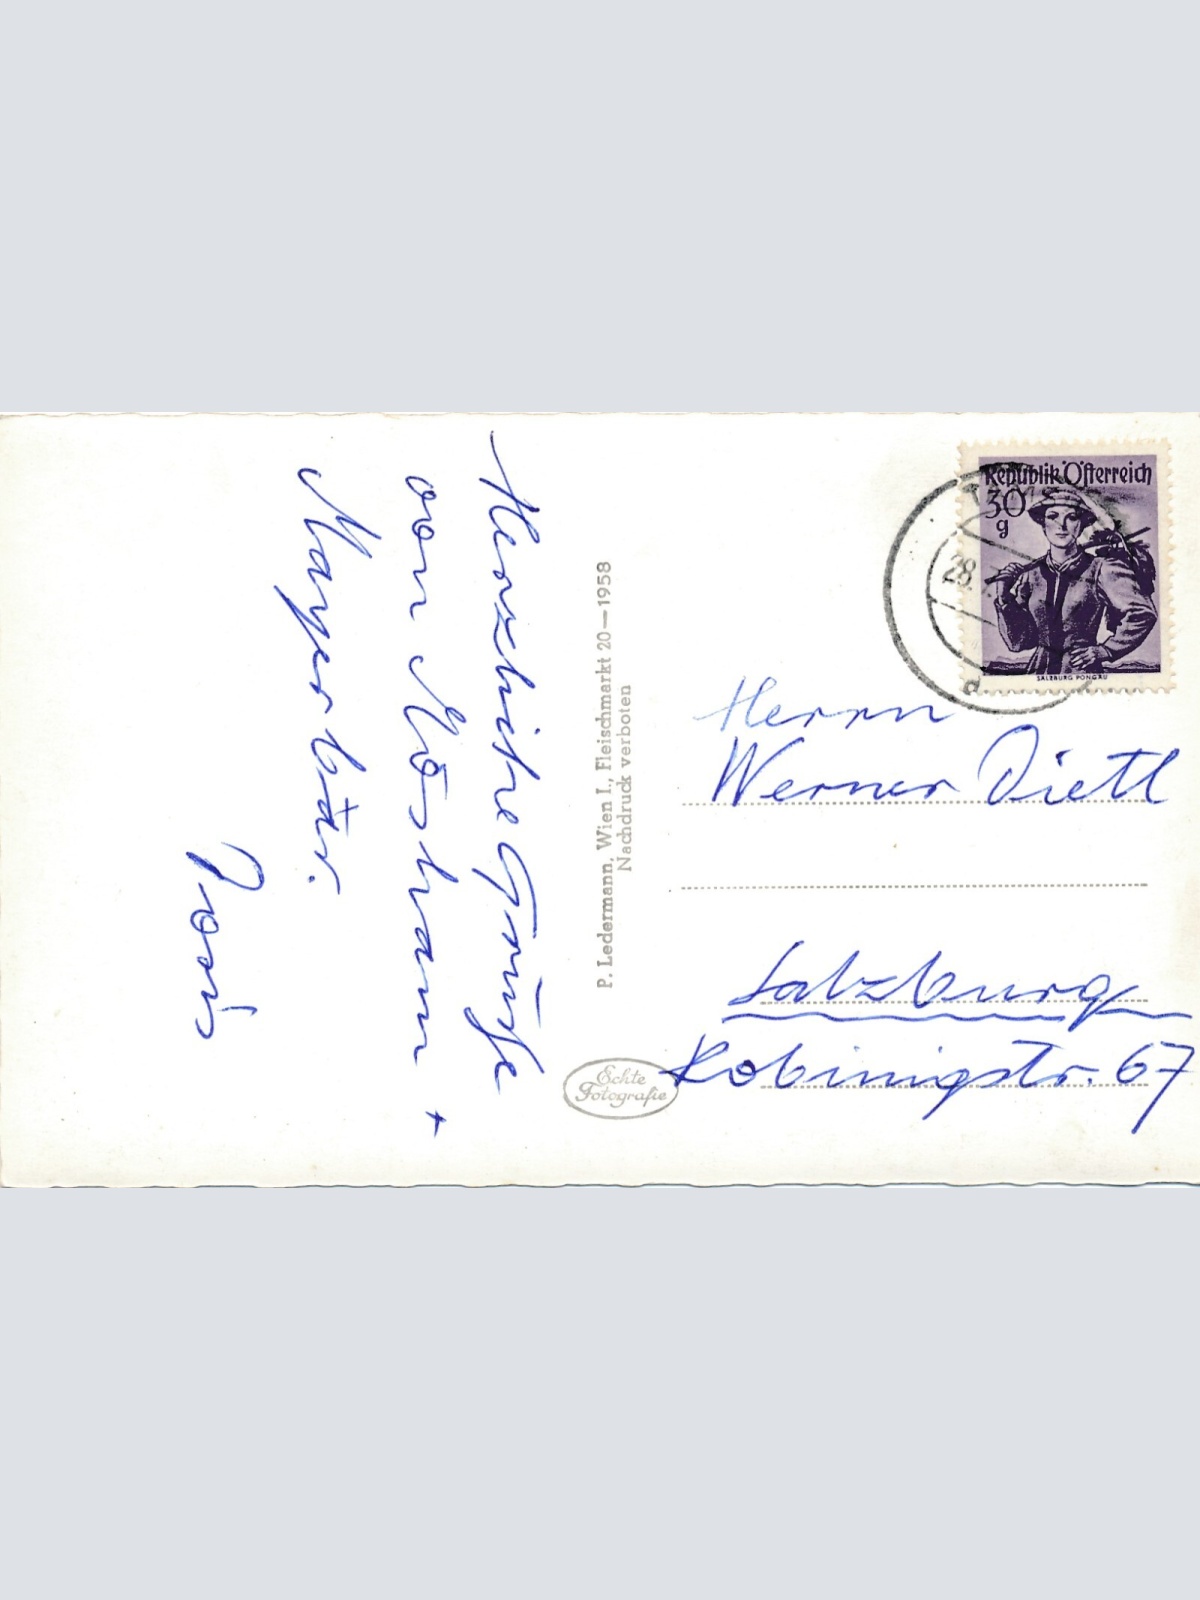 Herzliche Grüße
von Moosham +
Mayerhör.
P. Ledermann, Wien I., Fleischmarkt 20—1958
Nachdruck verboten
Echte
Fotografie
Republik Österreich
30
g
SALZBURG PONGAU
28.
d
Herrn
Werner Dietl
Salzburg
Robinigstr. 67